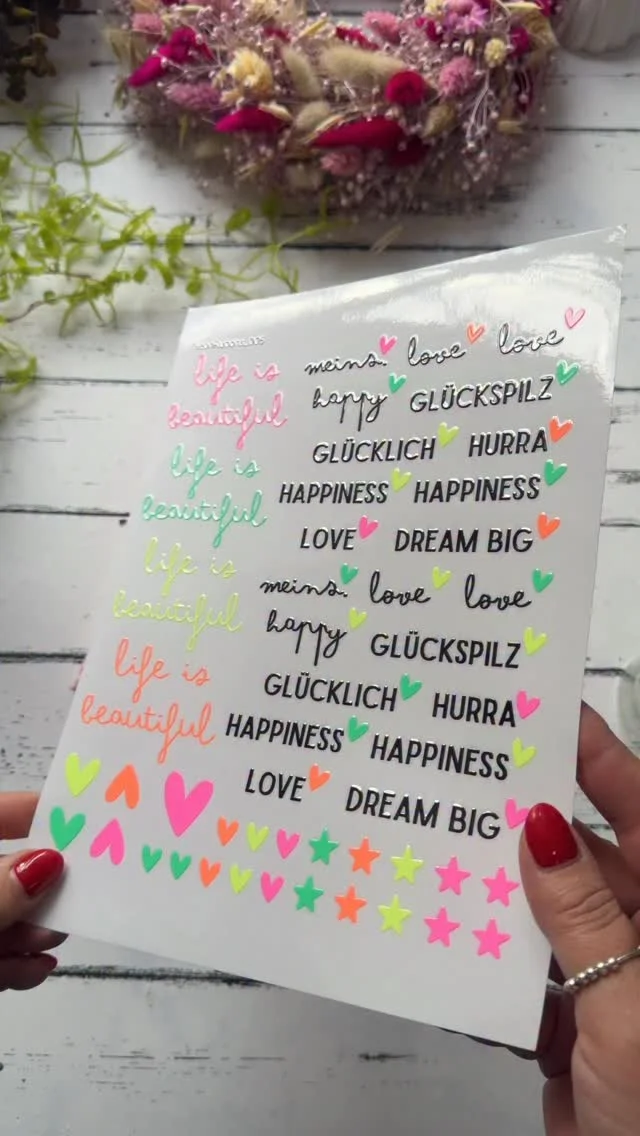 life is
beautiful
life is
beautiful
life is
beautiful
life is
beautiful
meins. love love
happy GLÜCKSPILZ
GLÜCKLICH HURRA
HAPPINESS HAPPINESS
LOVE DREAM BIG
meins. love love
happy GLÜCKSPILZ
GLÜCKLICH HURRA
HAPPINESS HAPPINESS
LOVE DREAM BIG